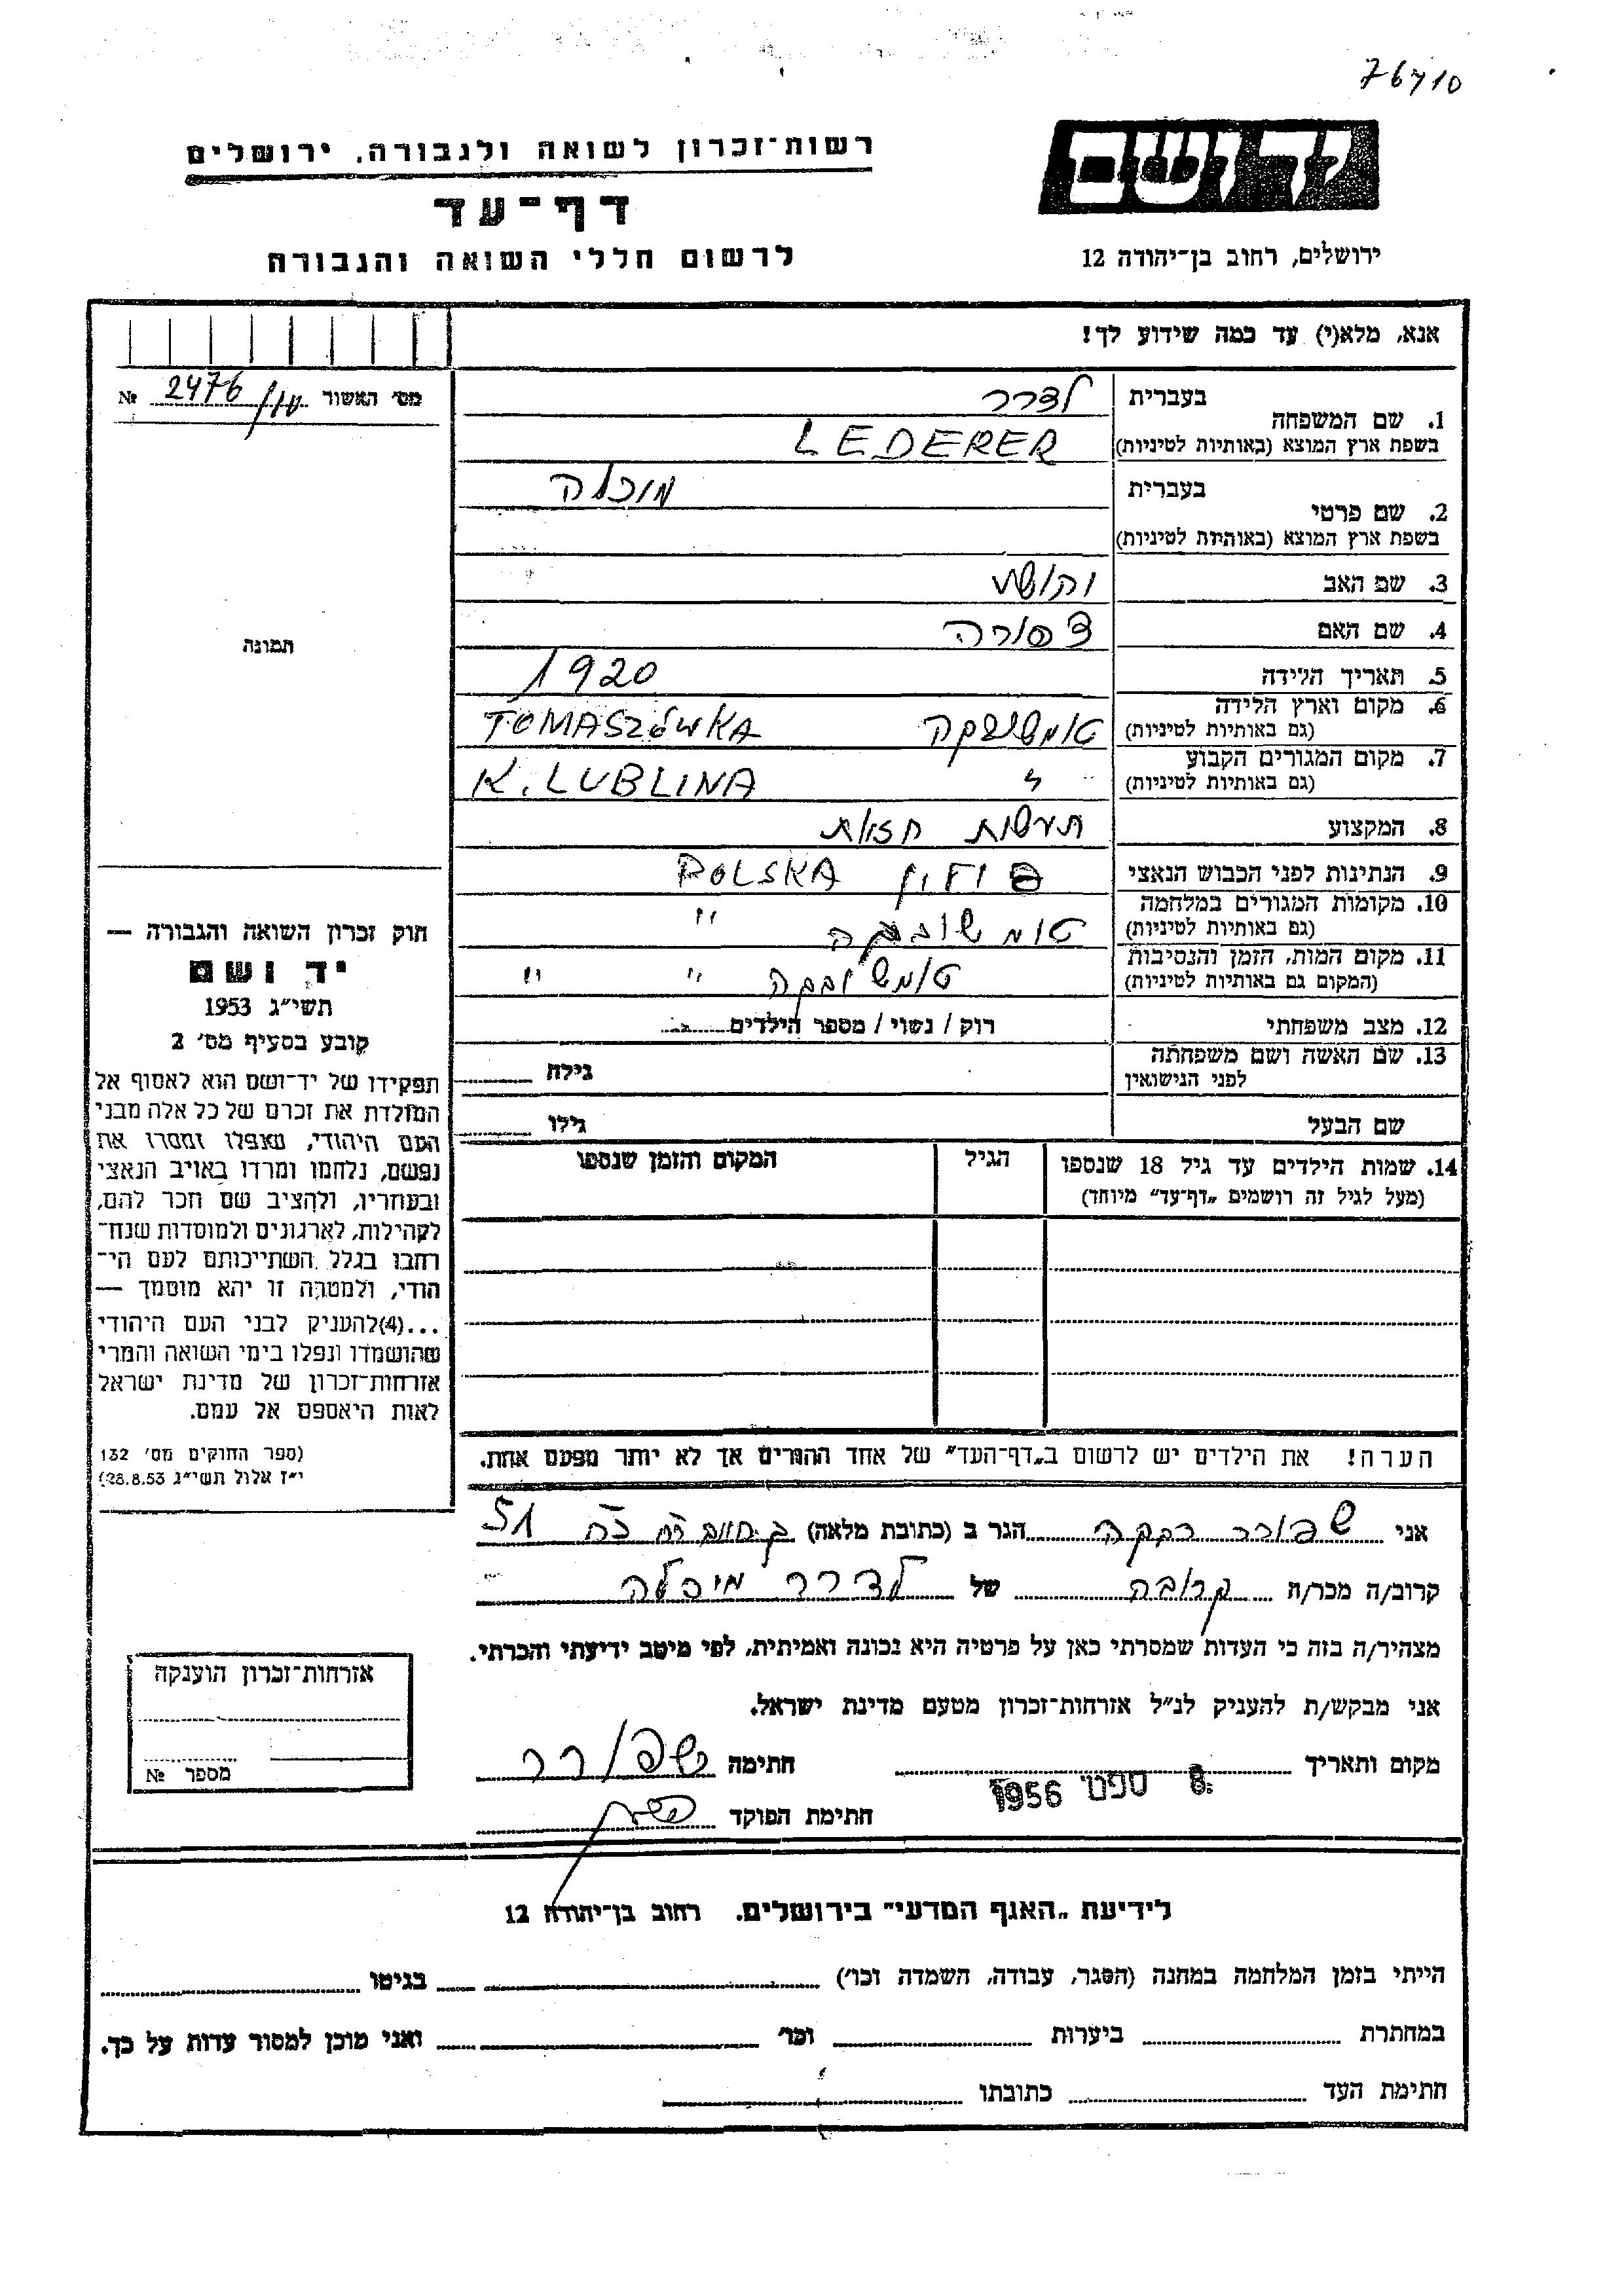 76410
יד ושם
רשות־זכרון לשואה ולגבורה, ירושלים
דף־עד
לרשום חללי השואה והגבורה
ירושלים, רחוב בן־יהודה 12
אנא, מלא(י) עד כמה שידוע לך!
מס׳ האשור 2476/ № 
1. שם המשפחה
בעברית לדרר
בשפת ארץ המוצא (באותיות לטיניות) LEDERER
2. שם פרטי
בעברית מיכלה
בשפת ארץ המוצא (באותיות לטיניות)
3. שם האב
4. שם האם צפורה
5. תאריך הלידה 1920
6. מקום וארץ הלידה
(גם באותיות לטיניות) TOMASZÓWKA
7. מקום המגורים הקבוע
(גם באותיות לטיניות) " K. LUBLINA
8. המקצוע
9. הנתינות לפני הכבוש הנאצי פולין POLSKA
10. מקומות המגורים במלחמה
(גם באותיות לטיניות) טומשובקה "
11. מקום המות, הזמן והנסיבות
(המקום גם באותיות לטיניות) טומשובקה " "
12. מצב משפחתי רוק / נשוי / מספר הילדים
13. שם האשה ושם משפחתה
לפני הנישואין גילה
שם הבעל גילו
14. שמות הילדים עד גיל 18 שנספו הגיל המקום והזמן שנספו
(מעל לגיל זה רושמים „דף־עד” מיוחד)
הערה! את הילדים יש לרשום ב„דף־העד” של אחד ההורים אך לא יותר מפעם אחת.
תמונה
חוק זכרון השואה והגבורה —
יד ושם
תשי״ג 1953
קובע בסעיף מס׳ 2
תפקידו של יד־ושם הוא לאסוף אל
המולדת את זכרם של כל אלה מבני
העם היהודי, שנפלו ומסרו את
נפשם, נלחמו ומרדו באויב הנאצי
ובעוזריו, ולהציב שם וזכר להם,
לקהילות, לארגונים ולמוסדות שנח־
רבו בגלל השתייכותם לעם הי־
הודי, ולמטרה זו יהא מוסמך —
...(4)להעניק לבני העם היהודי
שהושמדו ונפלו בימי השואה והמרי
אזרחות־זכרון של מדינת ישראל
לאות היאספם אל עמם.
(ספר החוקים מס׳ 132
י״ז אלול תשי״ג 28.8.53)
אני שפורר רבקה הגר ב (כתובת מלאה) 51
קרוב/ה מכר/ה קרובה של לדרר מיכלה
מצהיר/ה בזה כי העדות שמסרתי כאן על פרטיה היא נכונה ואמיתית, לפי מיטב ידיעתי והכרתי.
אני מבקש/ת להעניק לנ״ל אזרחות־זכרון מטעם מדינת ישראל.
מקום ותאריך 8. ספט׳ 1956 חתימה שפורר
חתימת הפוקד
אזרחות־זכרון הוענקה
מספר №
לידיעת „האגף המדעי” בירושלים. רחוב בן־יהודה 12
הייתי בזמן המלחמה במחנה (הסגר, עבודה, השמדה וכו׳) בגיטו
במחתרת ביערות וכו׳ ואני מוכן למסור עדות על כך.
חתימת העד כתובתו